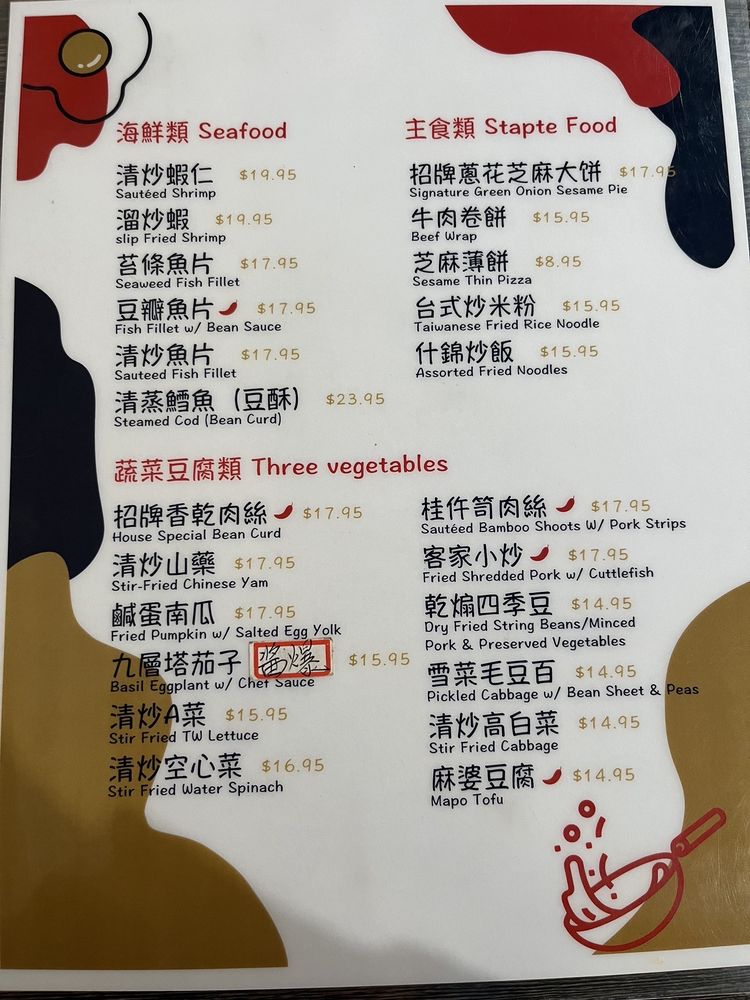 海鮮類 Seafood
清炒蝦仁 $19.95
Sautéed Shrimp
溜炒蝦 $19.95
slip Fried Shrimp
苔條魚片 $17.95
Seaweed Fish Fillet
豆瓣魚片 $17.95
Fish Fillet w/ Bean Sauce
清炒魚片 $17.95
Sauteed Fish Fillet
清蒸鱈魚 (豆酥) $23.95
Steamed Cod (Bean Curd)
主食類 Stapte Food
招牌蔥花芝麻大饼 $17.95
Signature Green Onion Sesame Pie
牛肉卷餅 $15.95
Beef Wrap
芝麻薄餅 $8.95
Sesame Thin Pizza
台式炒米粉 $15.95
Taiwanese Fried Rice Noodle
什錦炒飯 $15.95
Assorted Fried Noodles
蔬菜豆腐類 Three vegetables
招牌香乾肉絲 $17.95
House Special Bean Curd
清炒山藥 $17.95
Stir-Fried Chinese Yam
鹹蛋南瓜 $17.95
Fried Pumpkin w/ Salted Egg Yolk
九層塔茄子 醬爆 $15.95
Basil Eggplant w/ Chef Sauce
清炒A菜 $15.95
Stir Fried TW Lettuce
清炒空心菜 $16.95
Stir Fried Water Spinach
桂仵笥肉絲 $17.95
Sautéed Bamboo Shoots W/ Pork Strips
客家小炒 $17.95
Fried Shredded Pork w/ Cuttlefish
乾煸四季豆 $14.95
Dry Fried String Beans/Minced
Pork & Preserved Vegetables
雪菜毛豆百 $14.95
Pickled Cabbage w/ Bean Sheet & Peas
清炒高白菜 $14.95
Stir Fried Cabbage
麻婆豆腐 $14.95
Mapo Tofu